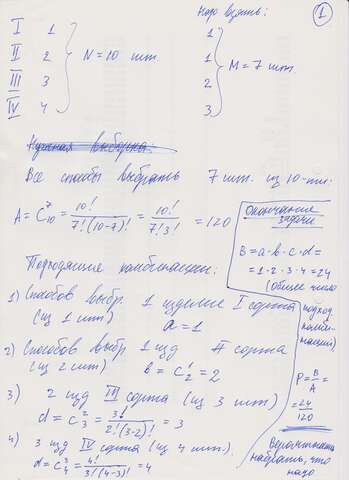 1
Надо взять:
I 1
II 2
III 3
IV 4
N = 10 шт.
1
1
2
3
M = 7 шт.
Нужная выборка
Все способы выбрать 7 шт. из 10-ти:
A = C⁷₁₀ = 10! / 7!(10-7)! = 10! / 7!3! = 120
Подходящие комбинации:
1) Способов выбр. 1 изделие I сорта
(из 1 шт) a = 1
2) Способов выбр 1 изд II сорта
(из 2 шт) b = C¹₂ = 2
3) 2 изд III сорта (из 3 шт)
d = C²₃ = 3! / 2!(3-2)! = 3
4) 3 изд IV сорта (из 4 шт.)
d = C³₄ = 4! / 3!(4-3)! = 4
Окончание
задачи
B = a·b·c·d =
= 1·2·3·4 = 24
(общее число
подход
комби-
наций)
P = B/A =
= 24/120
Вероятность
набрать, что
надо